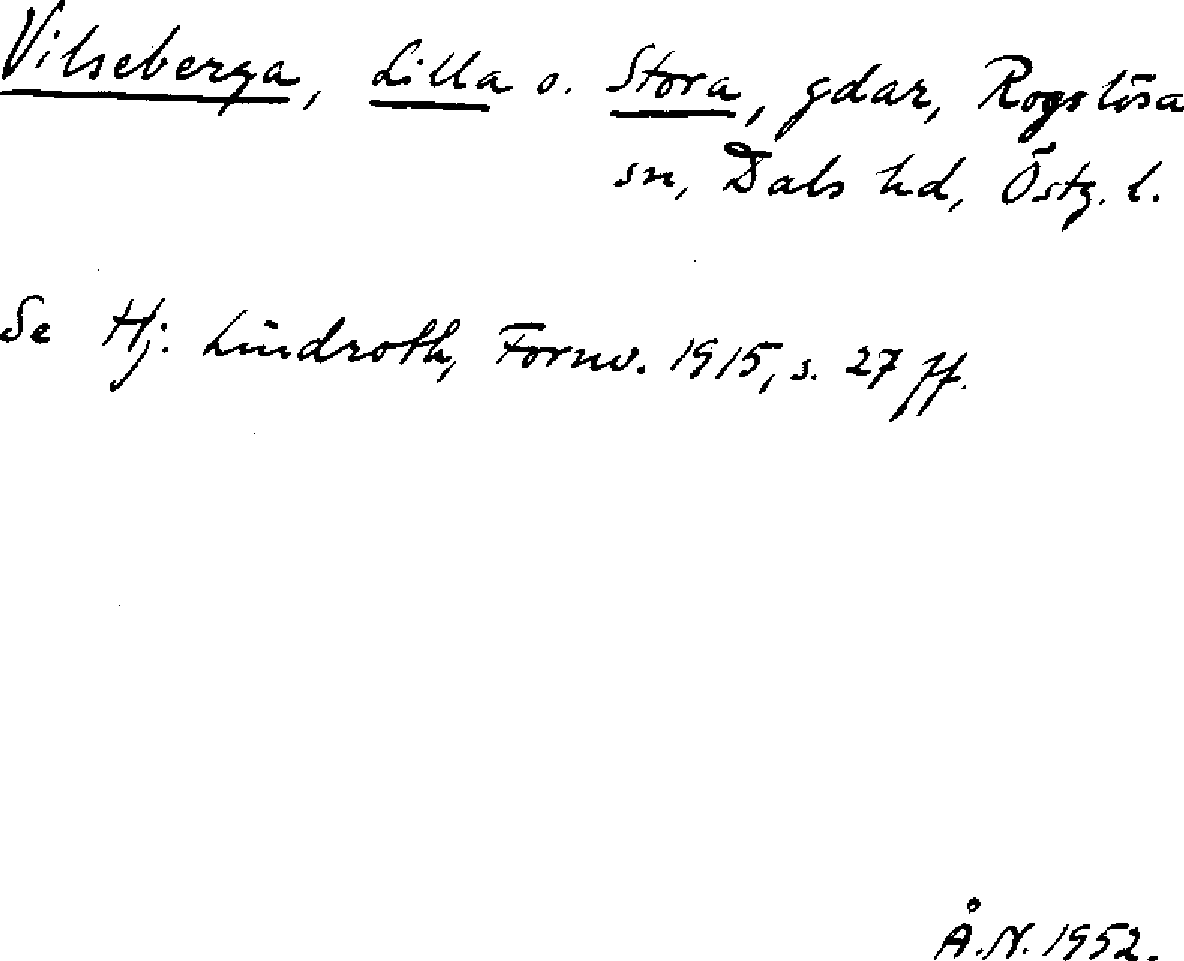 Vilseberga, Lilla o. Stora, gdar, Rogslösa
sn, Dals hd, Östg. l.
Se Hj. Lindroth, Fornv. 1915, s. 27 ff.
Å.N. 1952.